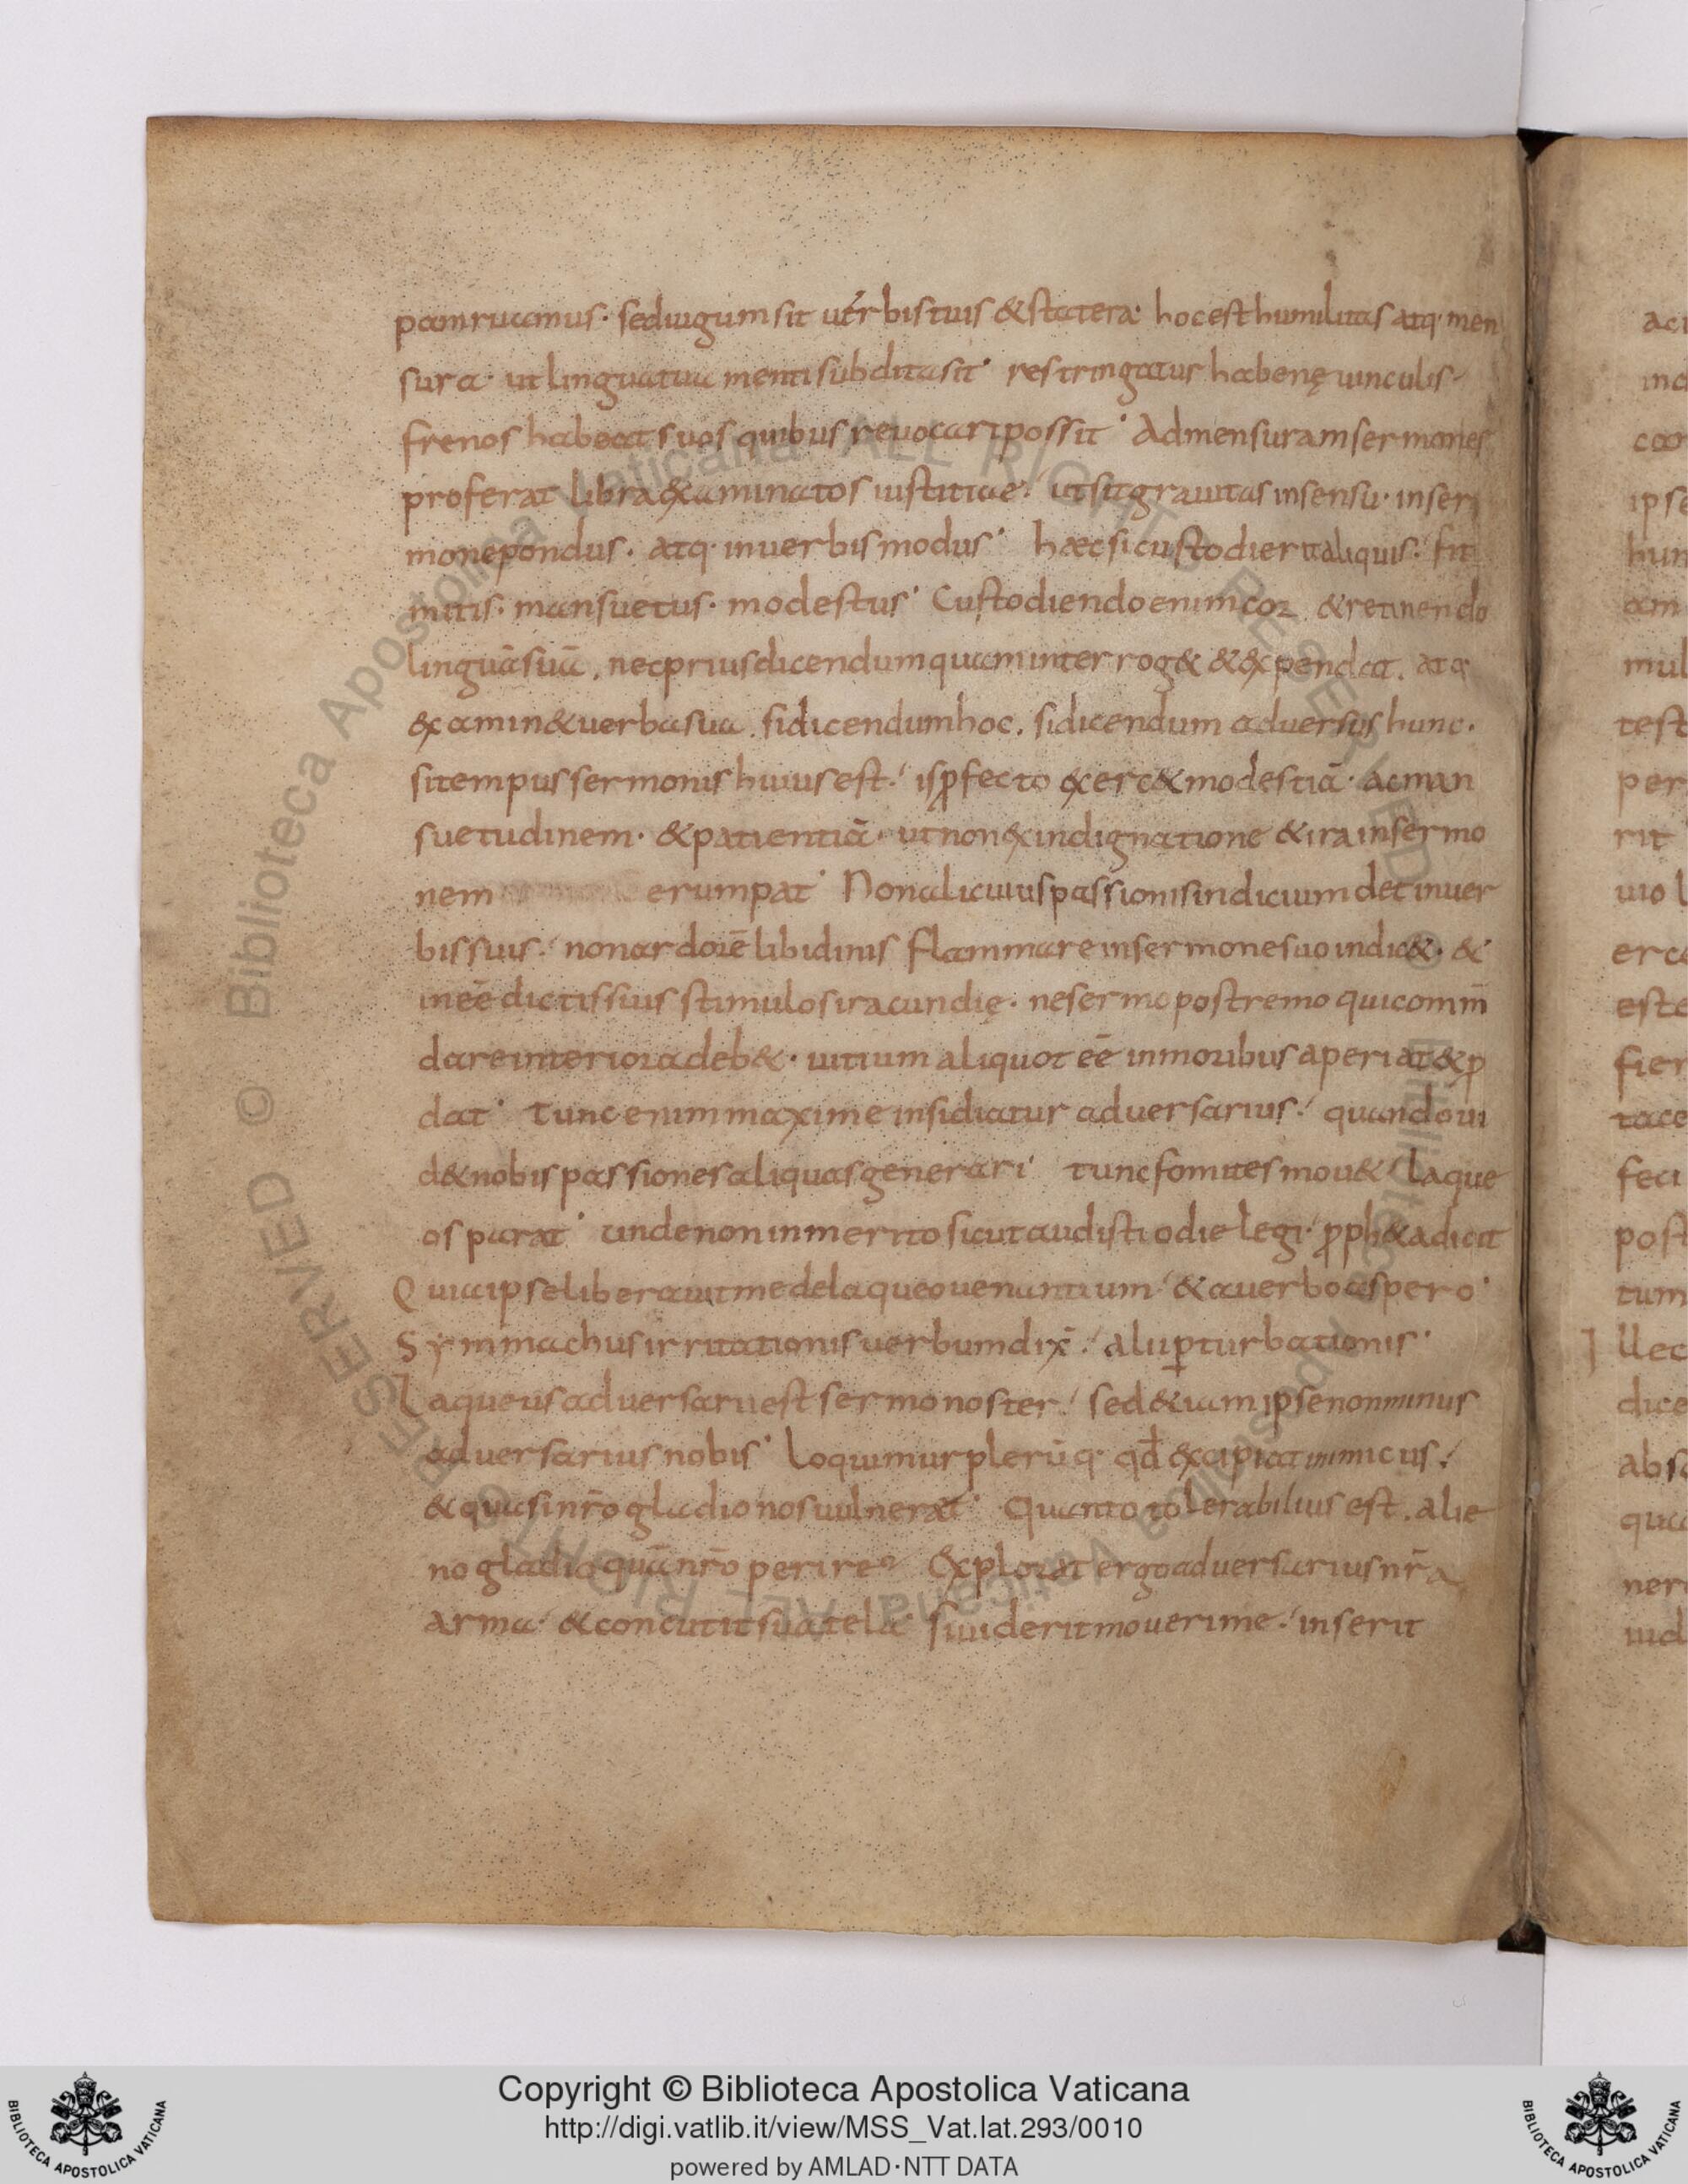 pam ruamus · sed iugum sit uerbis tuis & statera · hoc est humilitas atq· men
sura · ut lingua tua menti subdita sit · restringatur habenę uinculis
frenos habeat suos quibus reuocari possit · Ad mensuram sermones
proferat libra examinatos iustitiae · ut sit grauitas in sensu · in ser
mone pondus · atq· in uerbis modus · haec si custodierit aliquis · fit
mitis · mansuetus · modestus · Custodiendo enim cor & retinendo
linguā suā , nec prius dicendum quam interrog& & expendat . atq·
examin& uerba sua . si dicendum hoc . si dicendum aduersus hunc .
si tempus sermonis huius est · is ꝓfecto exerc& modestiā · ac man
suetudinem · & patientiā · ut non ex indignatione & ira in sermo
nem erumpat · Non alicuius passionis indicium det in uer
bis suis · non ardorē libidinis flammare in sermone suo indic& · &
inēē dictis sius stimulos iracundię · ne sermo postremo qui comm̄
dare interiora deb& · uitium aliquot ēē in moribus aperiat & ꝓ
dat · Tunc enim maxime insidiatur aduersarius · quando ui
d& nobis passiones aliquas generari · tunc fomites mou& laque
os parat · unde non inmerito sicut audisti odie legi · ꝓph&a dicit
Quia ipse liberauit me de laqueo uenantium & a uerbo aspero ·
Symmachus irritationis uerbum dix̄ · alii ꝑturbationis ·
Laqueus aduersarii est sermo noster sed &iam ipse non minus
aduersarius nobis · loquimur plerūq· qd̄ excipiat inimicus ·
& quasi nr̄o gladio nos uulnerat · Quanto tolerabilius est . alie
no gladio quā nr̄o perire · Explorat ergo aduersarius nr̄a
arma & concutit sua tela · si uiderit moueri me · inserit
Copyright © Biblioteca Apostolica Vaticana
http://digi.vatlib.it/view/MSS_Vat.lat.293/0010
powered by AMLAD·NTT DATA
BIBLIOTECA APOSTOLICA VATICANA
BIBLIOTECA APOSTOLICA VATICANA